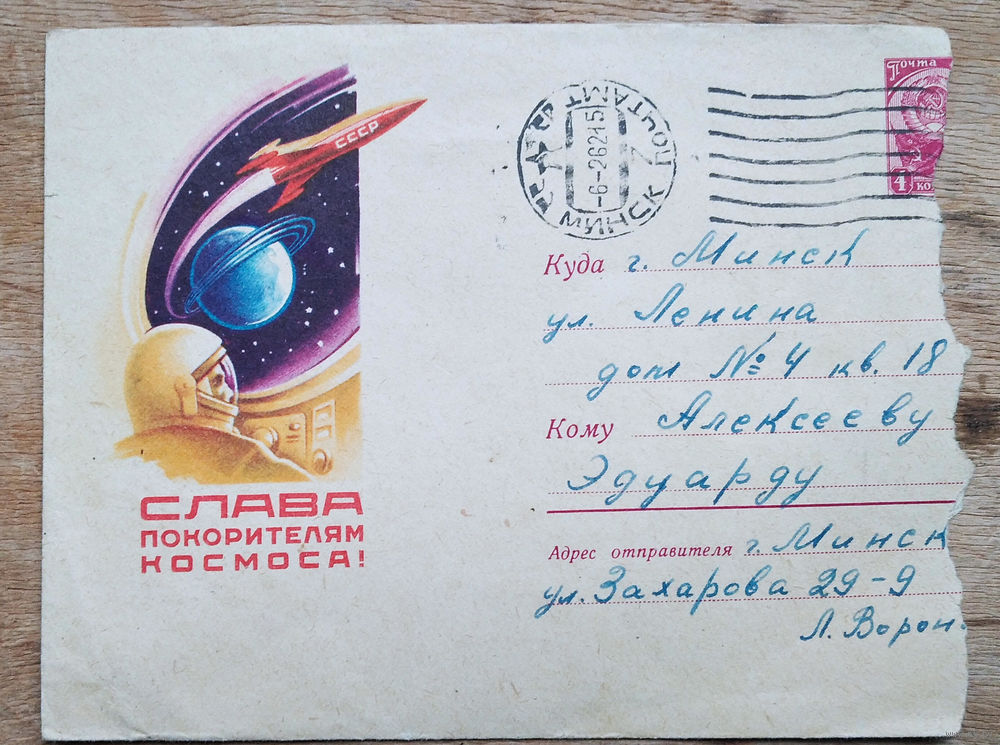 СССР
СЛАВА
ПОКОРИТЕЛЯМ
КОСМОСА!
МИНСК ПОЧТАМТ
-6-2621 5
Почта
4
КО
Куда г. Минск
ул. Ленина
дом № 4 кв. 18
Кому Алексееву
Эдуарду
Адрес отправителя г. Минск
ул. Захарова 29-9
Л. Ворон